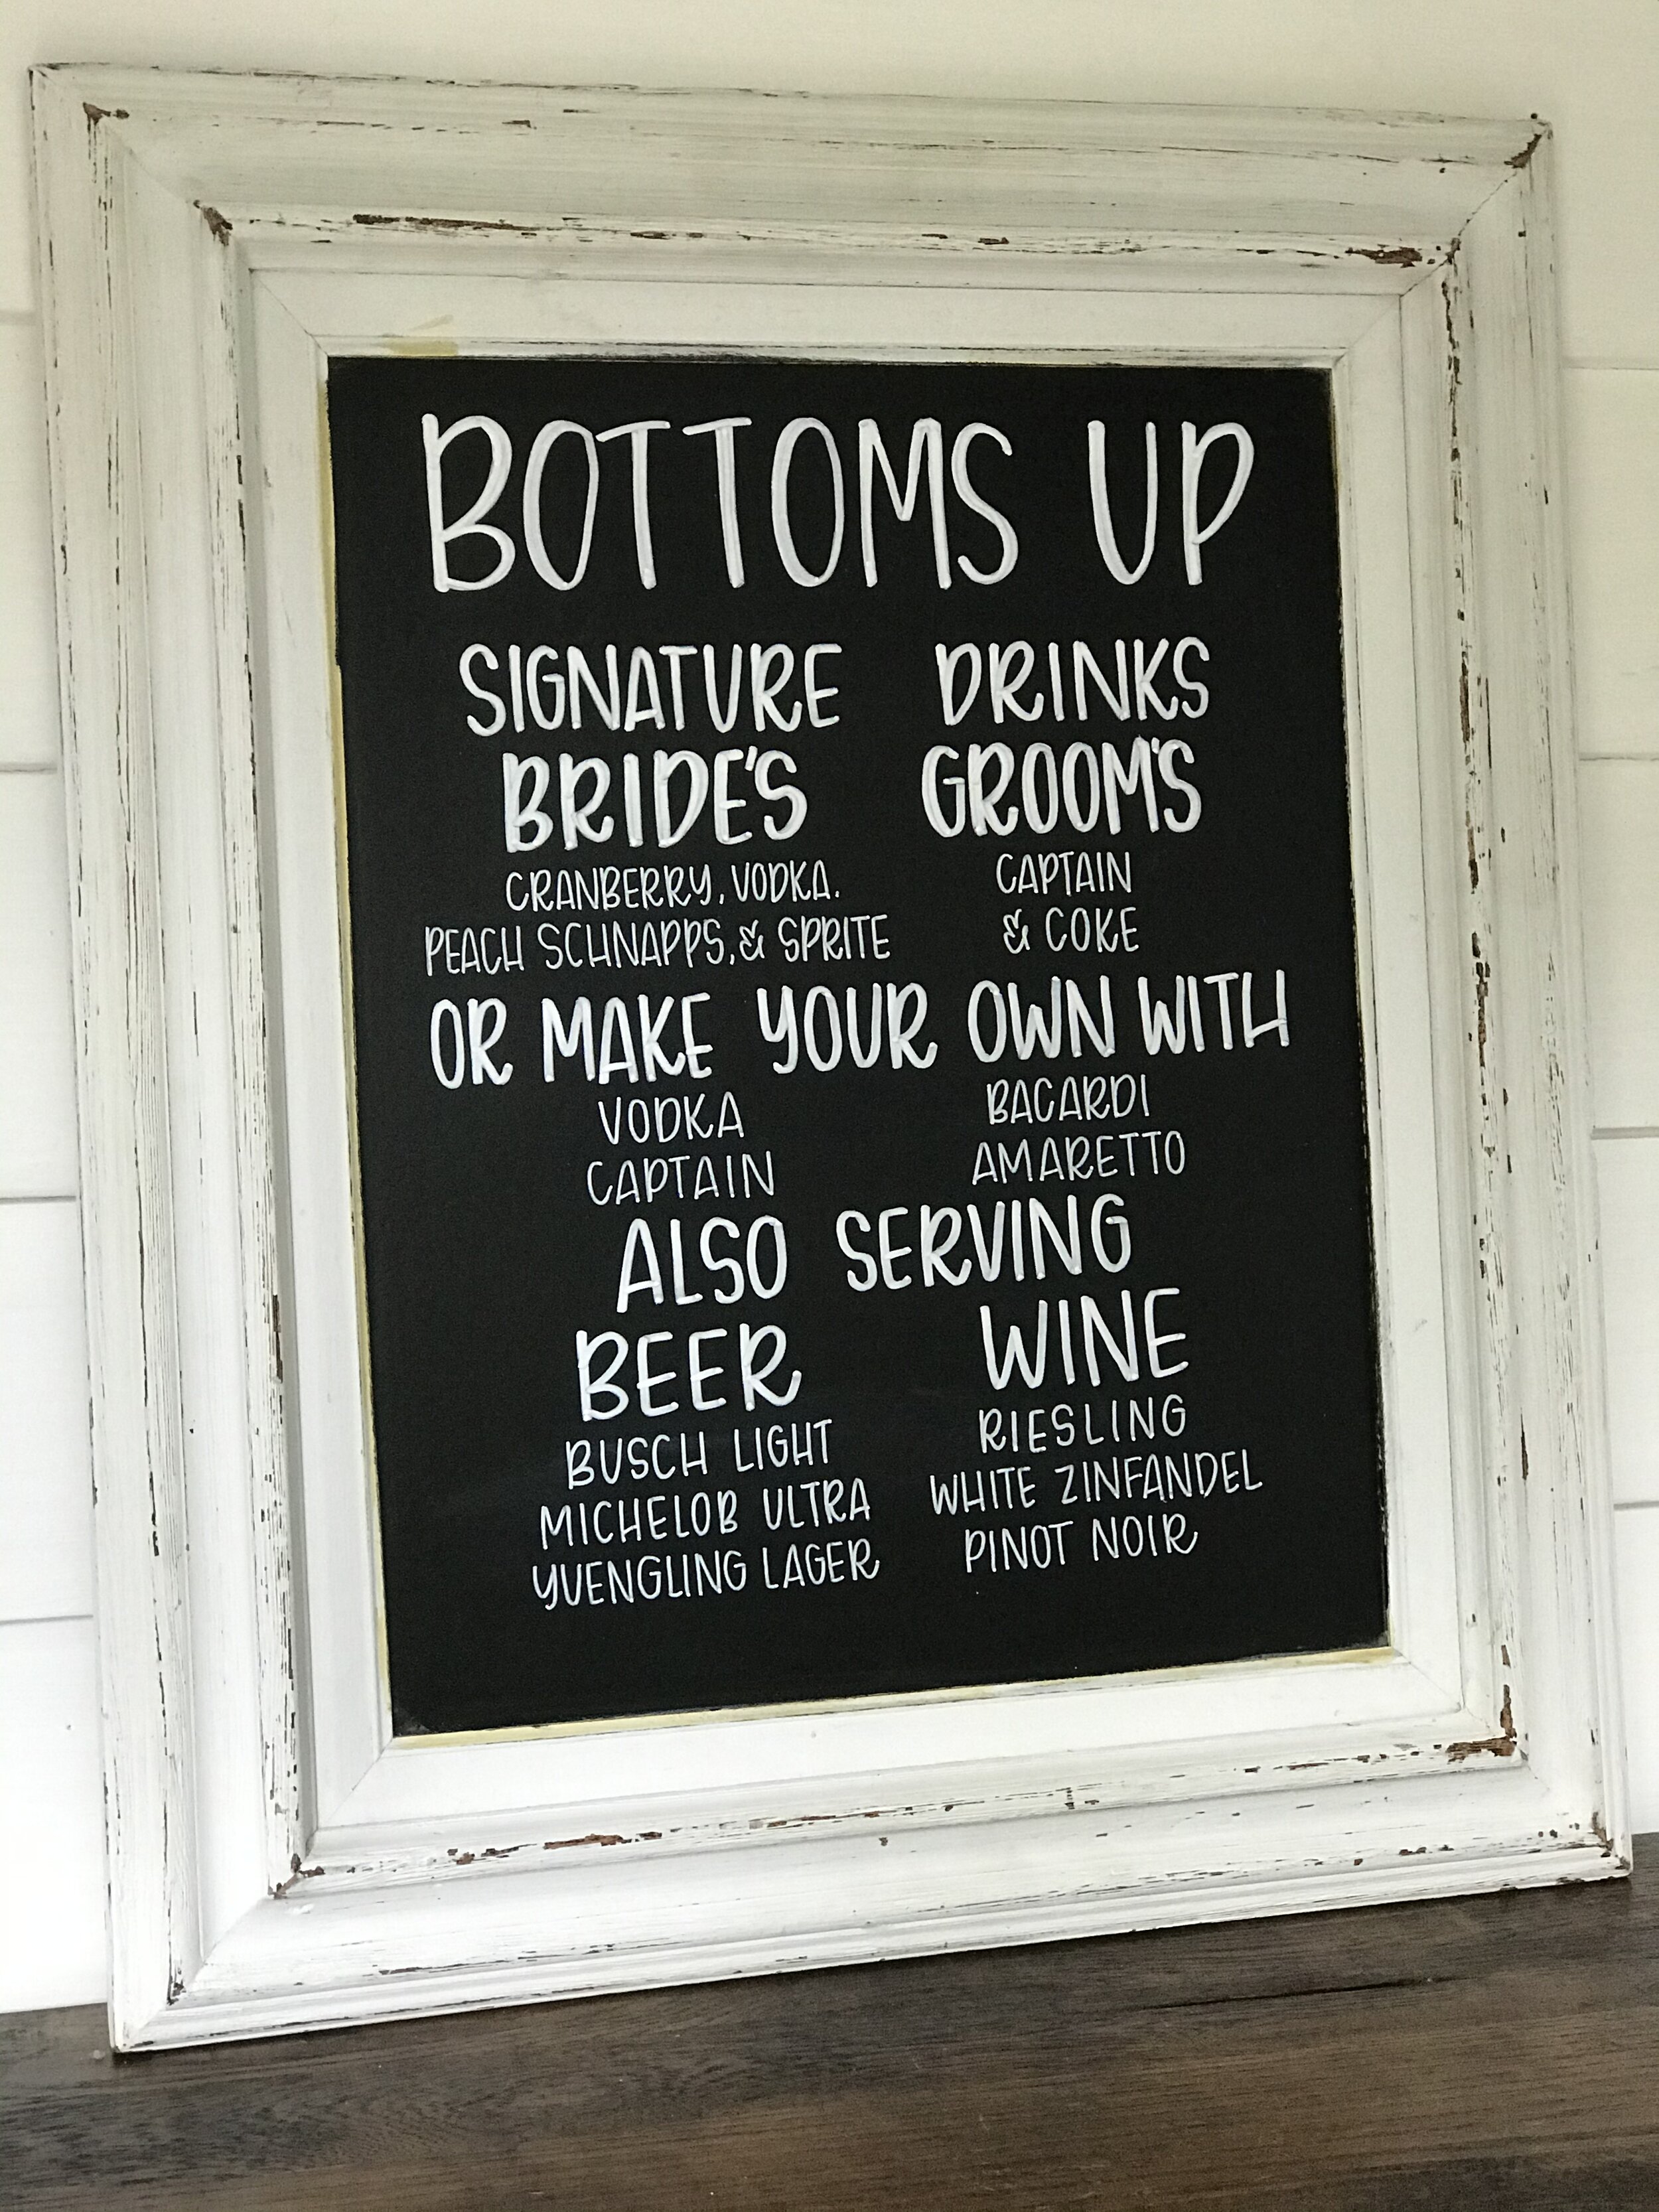 BOTTOMS UP
SIGNATURE DRINKS
BRIDE'S GROOM'S
CRANBERRY, VODKA, CAPTAIN
PEACH SCHNAPPS, & SPRITE & COKE
OR MAKE YOUR OWN WITH
VODKA BACARDI
CAPTAIN AMARETTO
ALSO SERVING
BEER WINE
BUSCH LIGHT RIESLING
MICHELOB ULTRA WHITE ZINFANDEL
YUENGLING LAGER PINOT NOIR